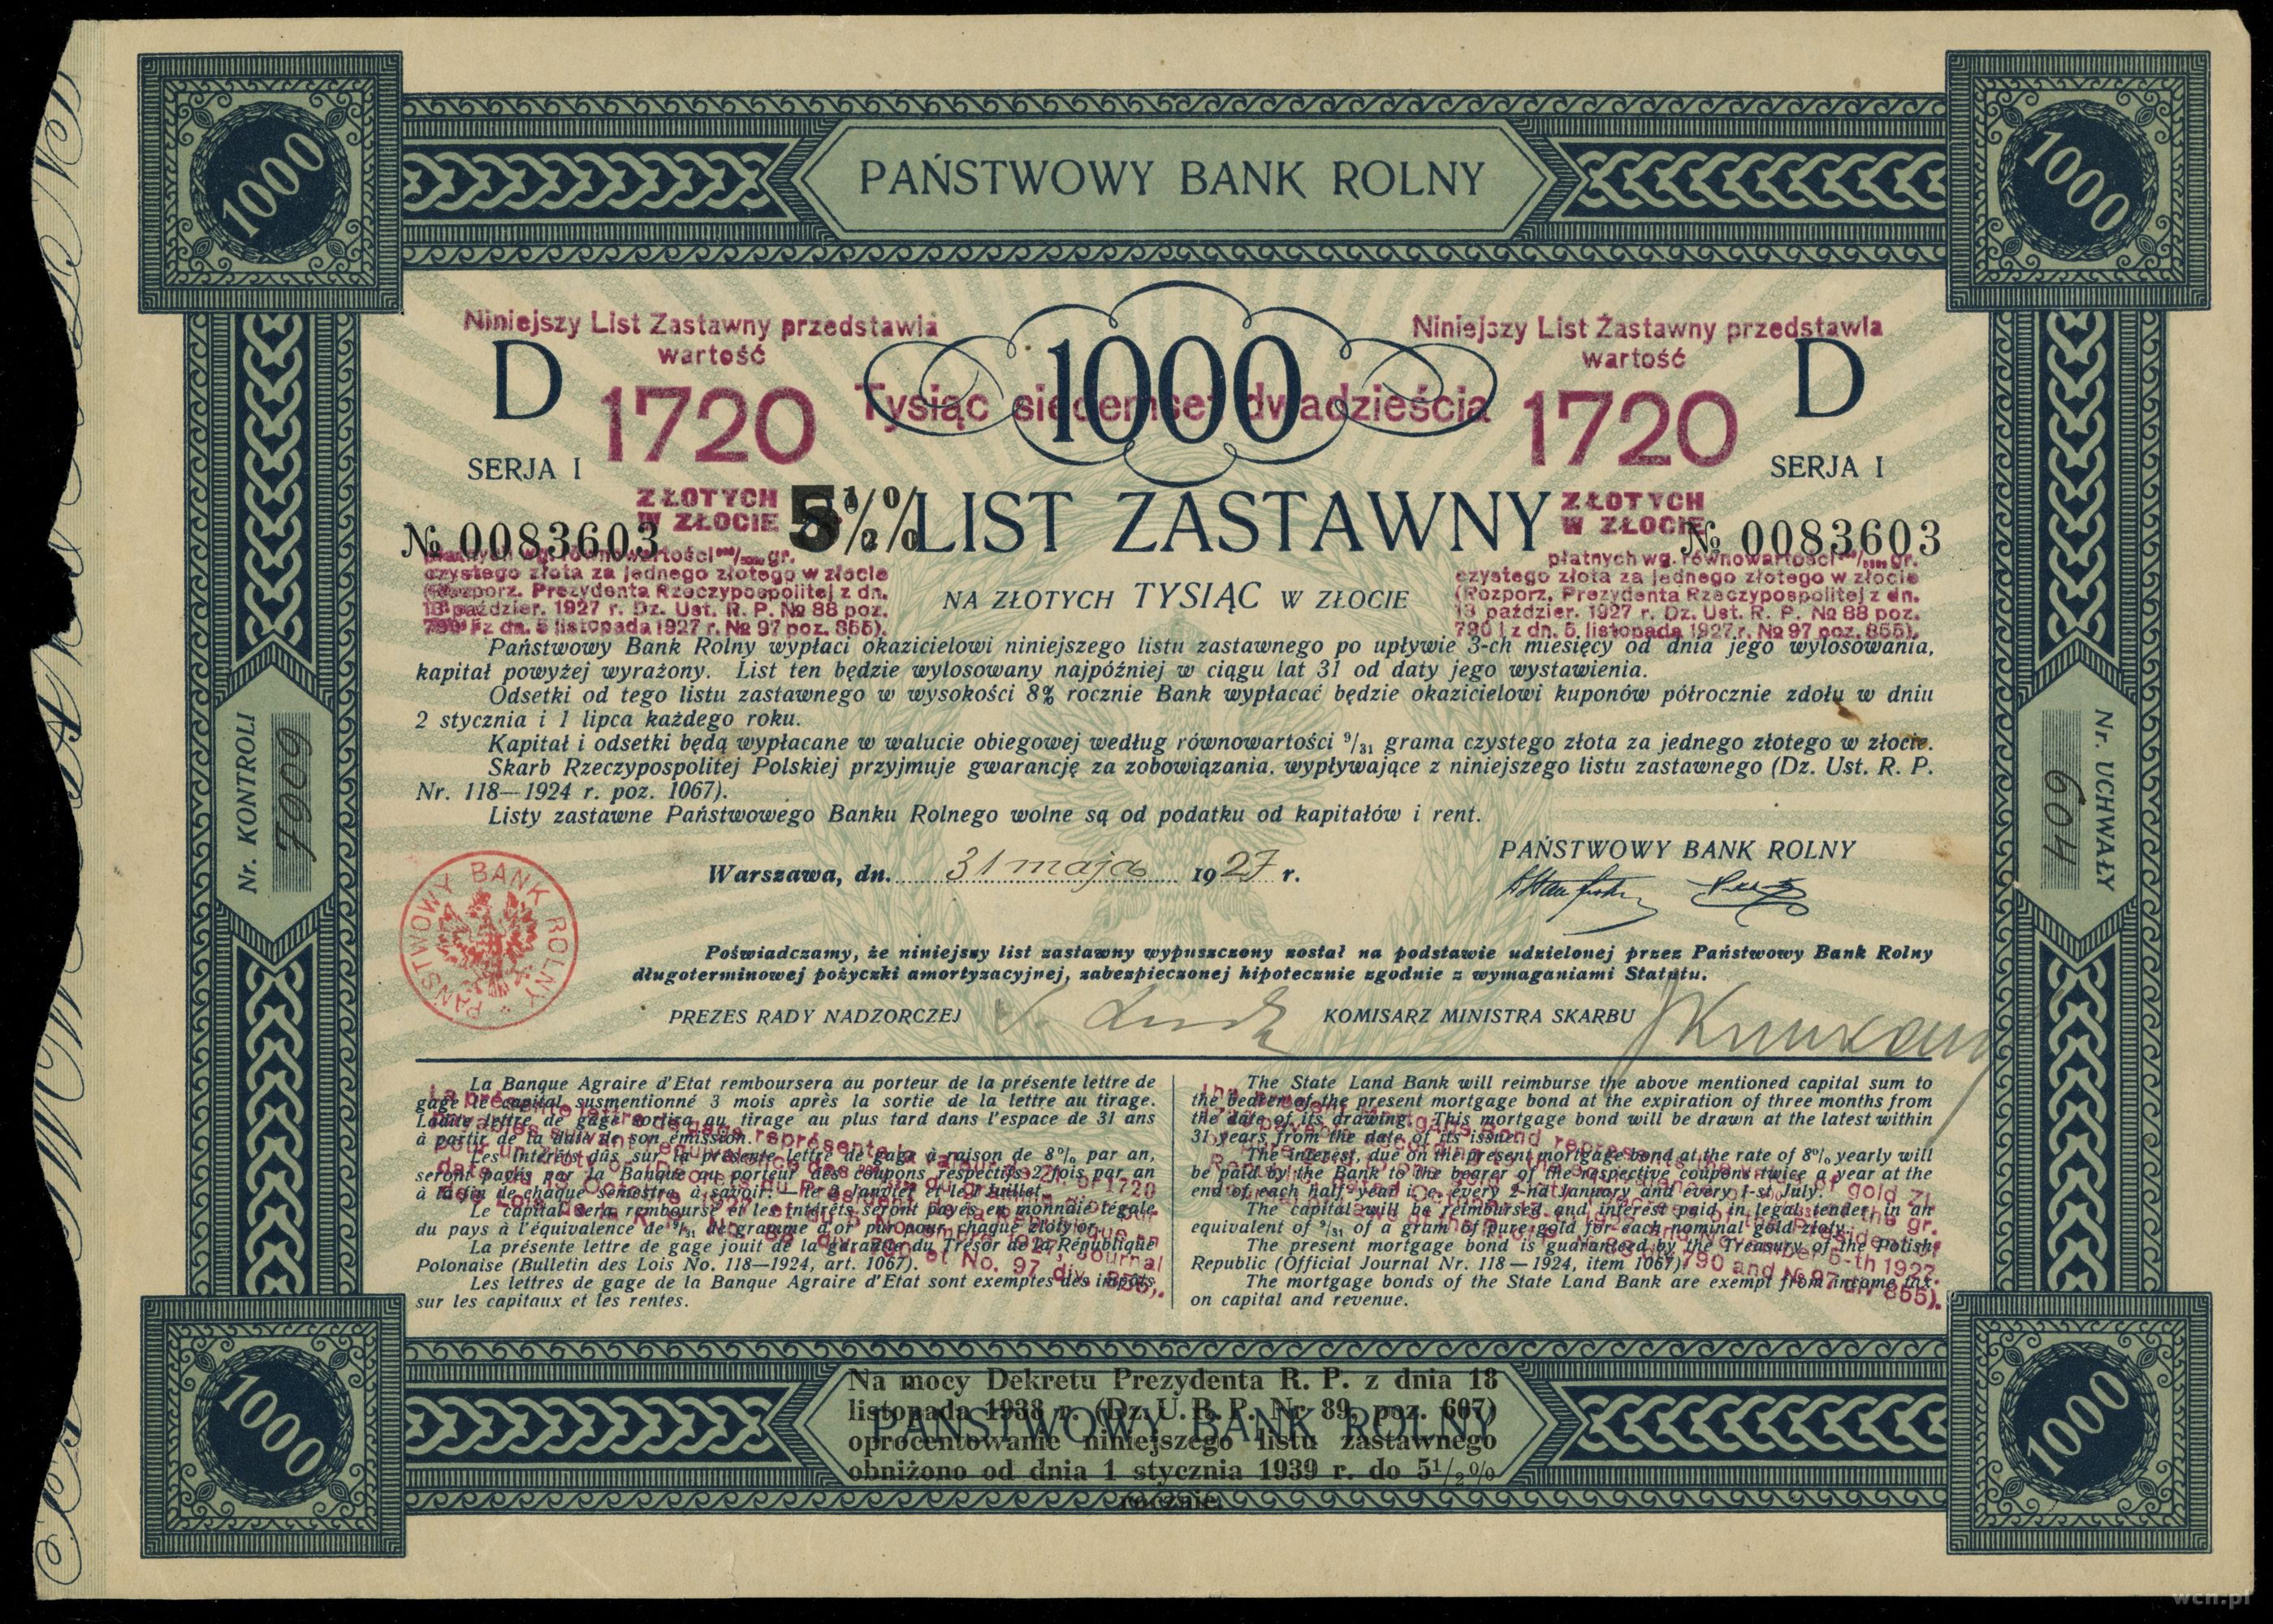 PAŃSTWOWY BANK ROLNY
1000
1000
Niniejszy List Zastawny przedstawia
wartość
Niniejszy List Zastawny przedstawia
wartość
D
1000
D
1720
Tysiąc siedemset dwadzieścia
1720
SERJA I
SERJA I
ZŁOTYCH
W ZŁOCIE
5½%
LIST ZASTAWNY
ZŁOTYCH
W ZŁOCIE
№ 0083603
№ 0083603
płatnych wg. równowartości gr.
czystego złota za jednego złotego w złocie
(Rozporz. Prezydenta Rzeczypospolitej z dn.
13 paździer. 1927 r. Dz. Ust. R. P. № 88 poz.
790 i z dn. 5 listopada 1927 r. № 97 poz. 855).
płatnych wg. równowartości gr.
czystego złota za jednego złotego w złocie
(Rozporz. Prezydenta Rzeczypospolitej z dn.
13 paździer. 1927 r. Dz. Ust. R. P. № 88 poz.
790 i z dn. 5. listopada 1927 r. № 97 poz. 855).
NA ZŁOTYCH TYSIĄC W ZŁOCIE
Państwowy Bank Rolny wypłaci okazicielowi niniejszego listu zastawnego po upływie 3-ch miesięcy od dnia jego wylosowania,
kapitał powyżej wyrażony. List ten będzie wylosowany najpóźniej w ciągu lat 31 od daty jego wystawienia.
Odsetki od tego listu zastawnego w wysokości 8% rocznie Bank wypłacać będzie okazicielowi kuponów półrocznie zdołu w dniu
2 stycznia i 1 lipca każdego roku.
Kapitał i odsetki będą wypłacane w walucie obiegowej według równowartości 9/31 grama czystego złota za jednego złotego w złocie.
Skarb Rzeczypospolitej Polskiej przyjmuje gwarancję za zobowiązania, wypływające z niniejszego listu zastawnego (Dz. Ust. R. P.
Nr. 118—1924 r. poz. 1067).
Listy zastawne Państwowego Banku Rolnego wolne są od podatku od kapitałów i rent.
Nr. KONTROLI
7909
Nr. UCHWAŁY
409
PAŃSTWOWY BANK ROLNY
Warszawa, dn. 31 maja 1927 r.
PAŃSTWOWY BANK ROLNY
Poświadczamy, że niniejszy list zastawny wypuszczony został na podstawie udzielonej przez Państwowy Bank Rolny
długoterminowej pożyczki amortyzacyjnej, zabezpieczonej hipotecznie zgodnie z wymaganiami Statutu.
PREZES RADY NADZORCZEJ
KOMISARZ MINISTRA SKARBU
La Banque Agraire d'Etat remboursera au porteur de la présente lettre de
gage le capital susmentionné 3 mois après la sortie de la lettre au tirage.
Ladite lettre de gage sortira au tirage au plus tard dans l'espace de 31 ans
à partir de la date de son émission.
Les intérêts dûs sur la présente lettre de gage à raison de 8% par an,
seront payés par la Banque au porteur des coupons respectifs 2 fois par an
à la fin de chaque semestre, à savoir: — le 2 Janvier et le 1 Juillet.
Le capital sera remboursé et les intérêts seront payés en monnaie légale
du pays à l'équivalence de 9/31 de gramme d'or pur pour chaque zloty or.
La présente lettre de gage jouit de la garantie du Trésor de la République
Polonaise (Bulletin des Lois No. 118—1924, art. 1067).
Les lettres de gage de la Banque Agraire d'Etat sont exemptes des impôts
sur les capitaux et les rentes.
The State Land Bank will reimburse the above mentioned capital sum to
the bearer of the present mortgage bond at the expiration of three months from
the date of its drawing. This mortgage bond will be drawn at the latest within
31 years from the date of its issue.
The interest, due on the present mortgage bond at the rate of 8% yearly will
be paid by the Bank to the bearer of the respective coupons twice a year at the
end of each half-year i. e. every 2-nd January and every 1-st July.
The capital will be reimbursed and interest paid in legal tender in an
equivalent of 9/31 of a gram of pure gold for each nominal gold zloty.
The present mortgage bond is guaranteed by the Treasury of the Polish
Republic (Official Journal Nr. 118—1924, item 1067).
The mortgage bonds of the State Land Bank are exempt from income tax
on capital and revenue.
1000
1000
PAŃSTWOWY BANK ROLNY
Na mocy Dekretu Prezydenta R. P. z dnia 18
listopada 1938 r. (Dz. U. R. P. Nr 89, poz. 607)
oprocentowanie niniejszego listu zastawnego
obniżono od dnia 1 stycznia 1939 r. do 5½%
rocznie.
wcn.pl